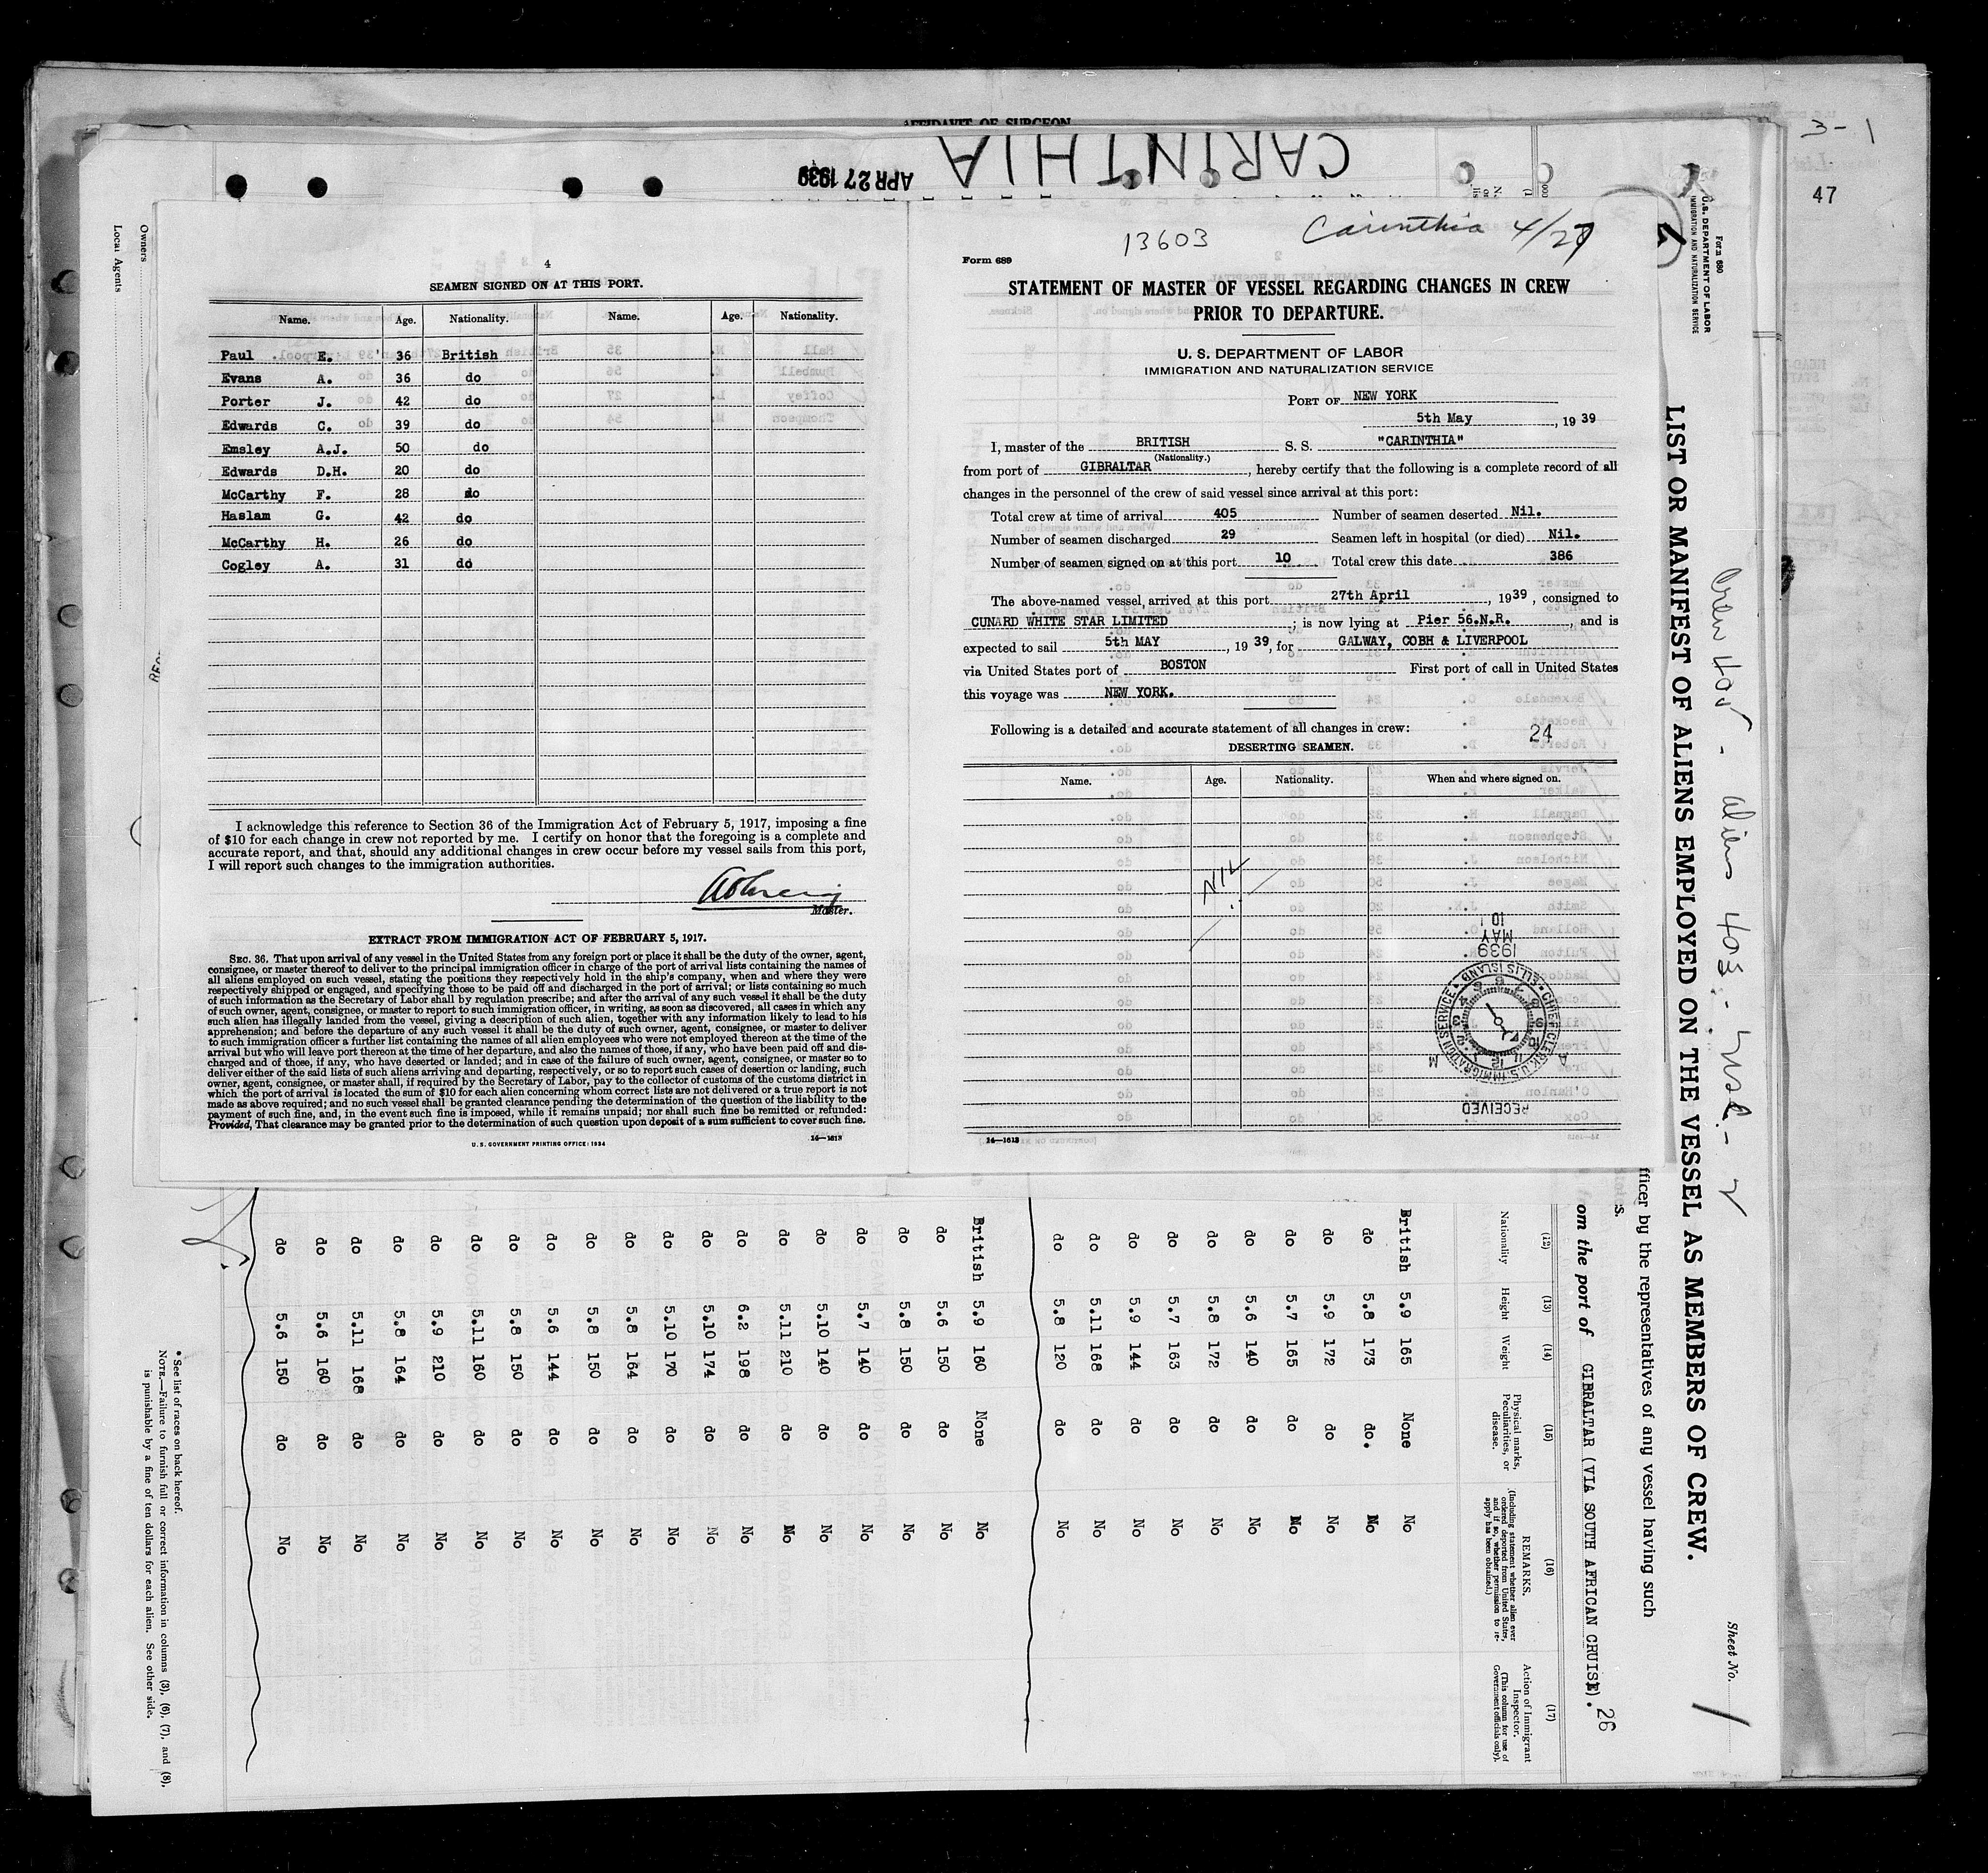 AFFIDAVIT OF SURGEON
CARINTHIA
APR 27 1939
3-1
47
Owners
Local Agents
4
SEAMEN SIGNED ON AT THIS PORT.
Name. Age. Nationality. Name. Age. Nationality.
Paul E. 36 British
Evans A. 36 do
Porter J. 42 do
Edwards C. 39 do
Emsley A.J. 50 do
Edwards D.H. 20 do
McCarthy F. 28 do
Haslam G. 42 do
McCarthy H. 26 do
Cogley A. 31 do
I acknowledge this reference to Section 36 of the Immigration Act of February 5, 1917, imposing a fine
of $10 for each change in crew not reported by me. I certify on honor that the foregoing is a complete and
accurate report, and that, should any additional changes in crew occur before my vessel sails from this port,
I will report such changes to the immigration authorities.
Master.
EXTRACT FROM IMMIGRATION ACT OF FEBRUARY 5, 1917.
SEC. 36. That upon arrival of any vessel in the United States from any foreign port or place it shall be the duty of the owner, agent,
consignee, or master thereof to deliver to the principal immigration officer in charge of the port of arrival lists containing the names of
all aliens employed on such vessel, stating the positions they respectively hold in the ship's company, when and where they were
respectively shipped or engaged, and specifying those to be paid off and discharged in the port of arrival; or lists containing so much
of such information as the Secretary of Labor shall by regulation prescribe; and after the arrival of any such vessel it shall be the duty
of such owner, agent, consignee, or master to report to such immigration officer, in writing, as soon as discovered, all cases in which any
such alien has illegally landed from the vessel, giving a description of such alien, together with any information likely to lead to his
apprehension; and before the departure of any such vessel it shall be the duty of such owner, agent, consignee, or master to deliver
to such immigration officer a further list containing the names of all alien employees who were not employed thereon at the time of the
arrival but who will leave port thereon at the time of her departure, and also the names of those, if any, who have been paid off and dis-
charged and of those, if any, who have deserted or landed; and in case of the failure of such owner, agent, consignee, or master so to
deliver either of the said lists of such aliens arriving and departing, respectively, or so to report such cases of desertion or landing, such
owner, agent, consignee, or master shall, if required by the Secretary of Labor, pay to the collector of customs of the customs district in
which the port of arrival is located the sum of $10 for each alien concerning whom correct lists are not delivered or a true report is not
made as above required; and no such vessel shall be granted clearance pending the determination of the question of the liability to the
payment of such fine, and, in the event such fine is imposed, while it remains unpaid; nor shall such fine be remitted or refunded:
Provided, That clearance may be granted prior to the determination of such question upon deposit of a sum sufficient to cover such fine.
U.S. GOVERNMENT PRINTING OFFICE: 1934 14—1613
13603 Carinthia 4/27
Form 689
STATEMENT OF MASTER OF VESSEL REGARDING CHANGES IN CREW
PRIOR TO DEPARTURE.
U. S. DEPARTMENT OF LABOR
IMMIGRATION AND NATURALIZATION SERVICE
PORT OF NEW YORK
5th May, 1939
I, master of the BRITISH S. S. "CARINTHIA"
(Nationality.)
from port of GIBRALTAR, hereby certify that the following is a complete record of all
changes in the personnel of the crew of said vessel since arrival at this port:
Total crew at time of arrival 405 Number of seamen deserted Nil.
Number of seamen discharged 29 Seamen left in hospital (or died) Nil.
Number of seamen signed on at this port 10 Total crew this date 386
The above-named vessel, arrived at this port 27th April, 1939, consigned to
CUNARD WHITE STAR LIMITED; is now lying at Pier 56.N.R., and is
expected to sail 5th MAY, 1939, for GALWAY, COBH & LIVERPOOL
via United States port of BOSTON First port of call in United States
this voyage was NEW YORK.
Following is a detailed and accurate statement of all changes in crew: 24
DESERTING SEAMEN.
Name. Age. Nationality. When and where signed on.
NIL
RECEIVED
CHIEF CLERK U.S. IMMIGRATION SERVICE ELLIS ISLAND
A M
1939
MAY
10
14—1613
Form 680
U.S. DEPARTMENT OF LABOR
IMMIGRATION AND NATURALIZATION SERVICE
LIST OR MANIFEST OF ALIENS EMPLOYED ON THE VESSEL AS MEMBERS OF CREW.
Crew 405 - aliens 403 - USC - 2
Sheet No. 1
fficer by the representatives of any vessel having such
s.
om the port of GIBRALTAR (VIA SOUTH AFRICAN CRUISE).
26
(12) (13) (14) (15) (16) (17)
Nationality Height Weight Physical marks, Peculiarities, or disease. REMARKS. (Including statement whether alien ever ordered deported from United States, and if so, whether permission to re-apply has been obtained.) Action of Immigrant Inspector. (This column for use of Government officials only).
British 5.9 165 None No
do 5.8 173 do. No
do 5.9 172 do No
do 5.7 165 do No
do 5.6 140 do No
do 5.8 172 do No
do 5.7 163 do No
do 5.9 144 do No
do 5.11 168 do No
do 5.8 120 do No
British 5.9 160 None No
do 5.6 150 do No
do 5.8 150 do No
do 5.7 140 do No
do 5.10 140 do No
do 5.11 210 do No
do 6.2 198 do No
do 5.10 174 do No
do 5.10 170 do No
do 5.8 164 do No
do 5.8 150 do No
do 5.6 144 do No
do 5.8 150 do No
do 5.11 160 do No
do 5.9 210 do No
do 5.8 164 do No
do 5.11 168 do No
do 5.6 160 do No
do 5.6 150 do No
* See list of races on back hereof.
NOTE.—Failure to furnish full or correct information in columns (3), (6), (7), and (8),
is punishable by a fine of ten dollars for each alien. See other side.